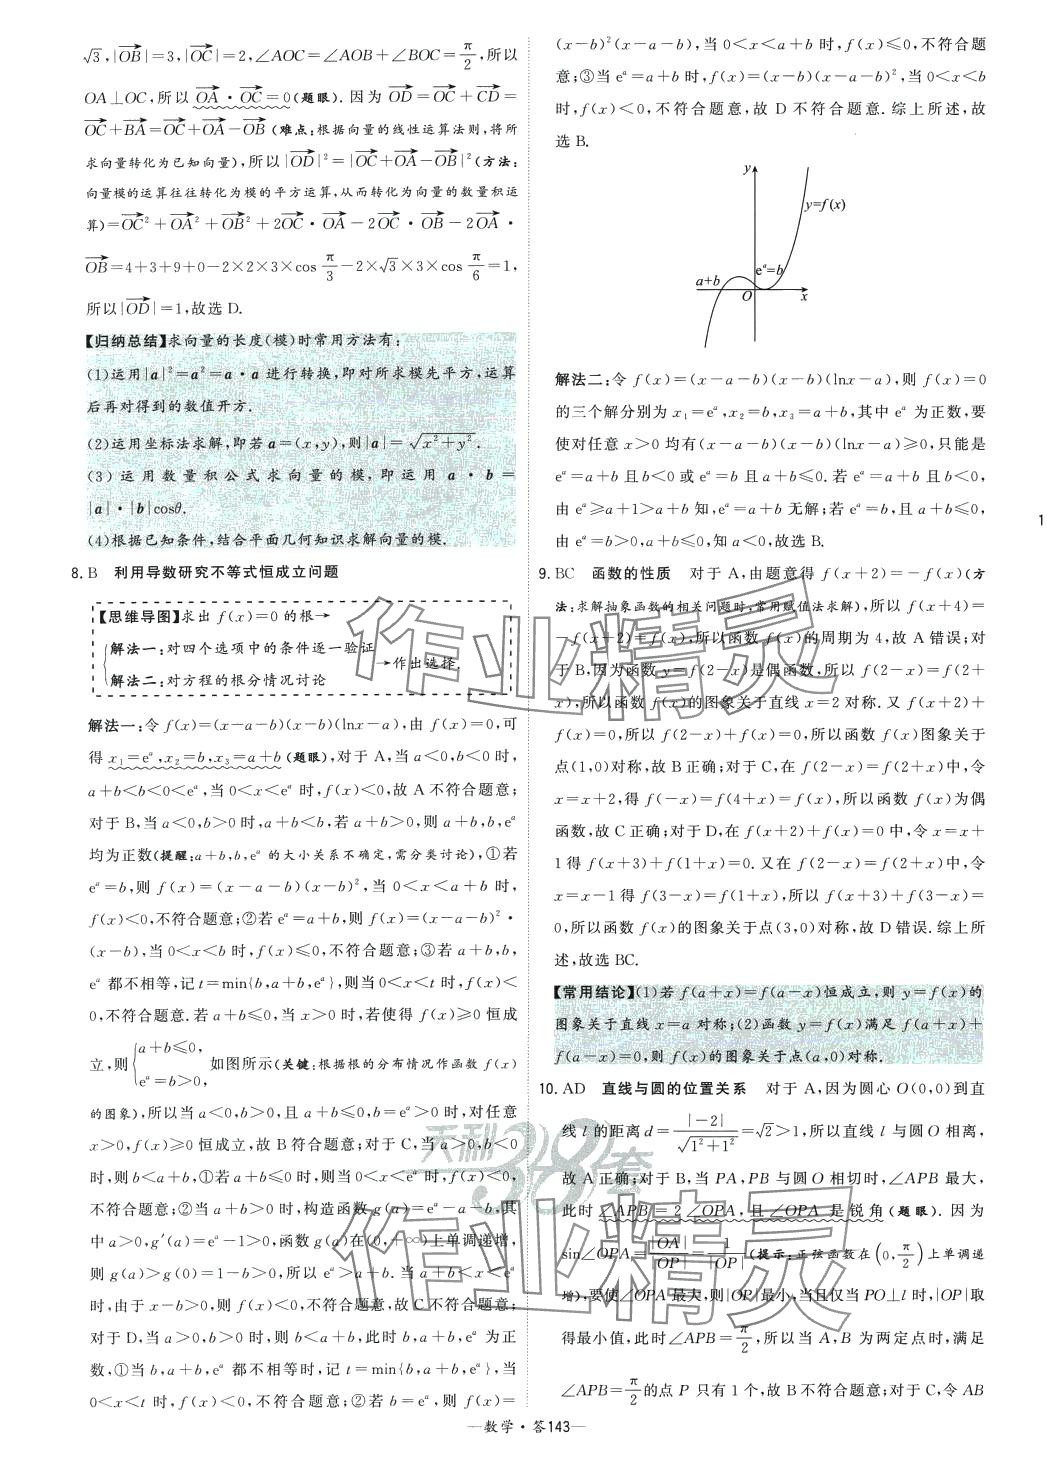 √3,|OB|=3,|OC|=2,∠AOC=∠AOB+∠BOC=π/2,所以
OA⊥OC,所以 OA·OC=0(题眼). 因为 OD=OC+CD=
OC+BA=OC+OA-OB (难点:根据向量的线性运算法则,将所
求向量转化为已知向量),所以|OD|²=|OC+OA-OB|²(方法:
向量模的运算往往转化为模的平方运算,从而转化为向量的数量积运
算)=OC²+OA²+OB²+2OC·OA-2OC·OB-2OA·
OB=4+3+9+0-2×2×3×cos π/3-2×√3×3×cos π/6=1,
所以|OD|=1,故选 D.
【归纳总结】求向量的长度(模)时常用方法有:
(1)运用|a|²=a²=a·a 进行转换,即对所求模先平方,运算
后再对得到的数值开方.
(2)运用坐标法求解,即若 a=(x,y),则|a|=√(x²+y²).
(3)运用数量积公式求向量的模,即运用 a·b=
|a|·|b|cosθ.
(4)根据已知条件,结合平面几何知识求解向量的模.
8. B 利用导数研究不等式恒成立问题
【思维导图】求出 f(x)=0 的根→
解法一:对四个选项中的条件逐一验证
解法二:对方程的根分情况讨论
→作出选择.
解法一:令 f(x)=(x-a-b)(x-b)(lnx-a),由 f(x)=0,可
得 x₁=eᵃ,x₂=b,x₃=a+b(题眼),对于 A,当 a<0,b<0 时,
a+b<b<0<eᵃ,当 0<x<eᵃ 时,f(x)<0,故 A 不符合题意;
对于 B,当 a<0,b>0 时,a+b<b,若 a+b>0,则 a+b,b,eᵃ
均为正数(提醒:a+b,b,eᵃ 的大小关系不确定,需分类讨论),①若
eᵃ=b,则 f(x)=(x-a-b)(x-b)²,当 0<x<a+b 时,
f(x)<0,不符合题意;②若 eᵃ=a+b,则 f(x)=(x-a-b)²·
(x-b),当 0<x<b 时,f(x)≤0,不符合题意;③若 a+b,b,
eᵃ 都不相等,记 t=min{b,a+b,eᵃ},则当 0<x<t 时,f(x)<
0,不符合题意. 若 a+b≤0,当 x>0 时,若使得 f(x)≥0 恒成
立,则{a+b≤0, eᵃ=b>0, 如图所示(关键:根据根的分布情况作函数 f(x)
的图象),所以当 a<0,b>0,且 a+b≤0,b=eᵃ>0 时,对任意
x>0,f(x)≥0 恒成立,故 B 符合题意;对于 C,当 a>0,b<0
时,则 b<a+b,①若 a+b≤0 时,则当 0<x<eᵃ 时,f(x)<0,
不符合题意;②当 a+b>0 时,构造函数 g(a)=eᵃ-a-b,其
中 a>0,g′(a)=eᵃ-1>0,函数 g(a)在(0,+∞)上单调递增,
则 g(a)>g(0)=1-b>0,所以 eᵃ>a+b. 当 a+b<x<eᵃ
时,由于 x-b>0,则 f(x)<0,不符合题意,故 C 不符合题意;
对于 D,当 a>0,b>0 时,则 b<a+b,此时 b,a+b,eᵃ 为正
数,①当 b,a+b,eᵃ 都不相等时,记 t=min{b,a+b,eᵃ},当
0<x<t 时,f(x)<0,不符合题意;②若 b=eᵃ,则 f(x)=
(x-b)²(x-a-b),当 0<x<a+b 时,f(x)≤0,不符合题
意;③当 eᵃ=a+b 时,f(x)=(x-b)(x-a-b)²,当 0<x<b
时,f(x)<0,不符合题意,故 D 不符合题意. 综上所述,故
选 B.
y
y=f(x)
eᵃ=b
a+b
O
x
解法二:令 f(x)=(x-a-b)(x-b)(lnx-a),则 f(x)=0
的三个解分别为 x₁=eᵃ,x₂=b,x₃=a+b,其中 eᵃ 为正数,要
使对任意 x>0 均有(x-a-b)(x-b)(lnx-a)≥0,只能是
eᵃ=a+b 且 b<0 或 eᵃ=b 且 a+b≤0. 若 eᵃ=a+b 且 b<0,
由 eᵃ≥a+1>a+b 知,eᵃ=a+b 无解;若 eᵃ=b,且 a+b≤0,
由 eᵃ=b>0,a+b≤0,知 a<0,故选 B.
1
9. BC 函数的性质 对于 A,由题意得 f(x+2)=-f(x)(方
法:求解抽象函数的相关问题时,常用赋值法求解),所以 f(x+4)=
-f(x+2)=f(x),所以函数 f(x)的周期为 4,故 A 错误;对
于 B,因为函数 y=f(2-x)是偶函数,所以 f(2-x)=f(2+
x),所以函数 f(x)的图象关于直线 x=2 对称. 又 f(x+2)+
f(x)=0,所以 f(2-x)+f(x)=0,所以函数 f(x)图象关于
点(1,0)对称,故 B 正确;对于 C,在 f(2-x)=f(2+x)中,令
x=x+2,得 f(-x)=f(4+x)=f(x),所以函数 f(x)为偶
函数,故 C 正确;对于 D,在 f(x+2)+f(x)=0 中,令 x=x+
1 得 f(x+3)+f(1+x)=0. 又在 f(2-x)=f(2+x)中,令
x=x-1 得 f(3-x)=f(1+x),所以 f(x+3)+f(3-x)=
0,所以函数 f(x)的图象关于点(3,0)对称,故 D 错误. 综上所
述,故选 BC.
【常用结论】(1)若 f(a+x)=f(a-x)恒成立,则 y=f(x)的
图象关于直线 x=a 对称;(2)函数 y=f(x)满足 f(a+x)+
f(a-x)=0,则 f(x)的图象关于点(a,0)对称.
10. AD 直线与圆的位置关系 对于 A,因为圆心 O(0,0)到直
线 l 的距离 d=|-2|/√(1²+1²)=√2>1,所以直线 l 与圆 O 相离,
故 A 正确;对于 B,当 PA,PB 与圆 O 相切时,∠APB 最大,
此时 ∠APB=2∠OPA,且∠OPA 是锐角(题眼). 因为
sin∠OPA=|OA|/|OP|=1/|OP|(提示:正弦函数在(0,π/2)上单调递
增),要使∠OPA 最大,则|OP|最小,当且仅当 PO⊥l 时,|OP|取
得最小值,此时∠APB=π/2,所以当 A,B 为两定点时,满足
∠APB=π/2的点 P 只有 1 个,故 B 不符合题意;对于 C,令 AB
作业精灵
天利38套
作业精灵
—数学·答143—